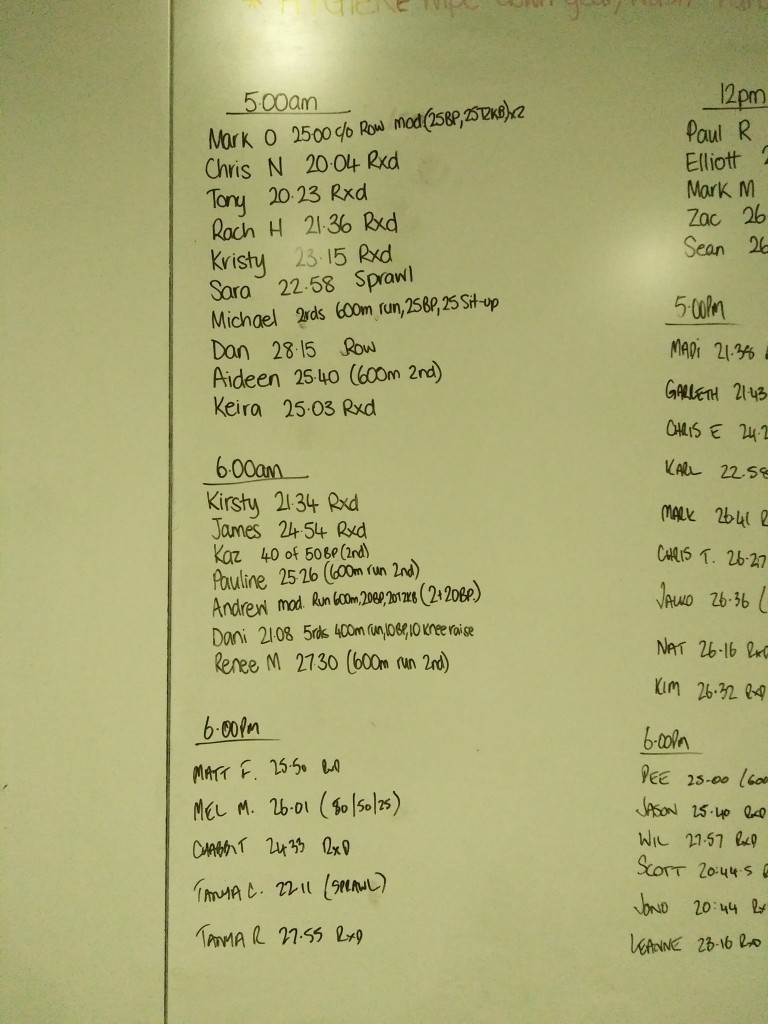 * HYGIENE wipe down gear, wash
5:00am
Mark O 25:00 c/o Row mod (25BP, 25 12KB)x2
Chris N 20.04 Rxd
Tony 20.23 Rxd
Rach H 21.36 Rxd
Kristy 23.15 Rxd
Sara 22.58 Sprawl
Michael 2rds 600m run, 25BP, 25 Sit-up
Dan 28.15 Row
Aideen 25.40 (600m 2nd)
Keira 25.03 Rxd
6:00am
Kirsty 21.34 Rxd
James 24.54 Rxd
Kaz 40 of 50BP (2nd)
Pauline 25.26 (600m run 2nd)
Andrew mod. Run 600m, 20BP, 20 12KB (2+20BP)
Dani 21.08 5rds 400m run, 10BP, 10 knee raise
Renee M 27.30 (600m run 2nd)
6.00pm
MATT F. 25.50 RxD
MEL M. 26.01 (80/50/25)
24.33 RxD
TANYA C. 22.11 (SPRAWL)
TANYA R 27.55 RxD
12pm
Paul R
Elliott 2
Mark M
Zac 26
Sean 26
5:00pm
MADi 21.38
GARRETH 21.43
CHRIS E 24.2
KARL 22.58
MARK 26.41 R
CHRIS T. 26.27
26.36 (
NAT 26.16 RxD
KIM 26.32 RxD
6:00pm
PEE 25.00 (600
JASON 25.40 RxD
WIL 27.57 RxD
SCOTT 20:44.5 R
JONO 20:44 Rx
LEANNE 23.16 RxD